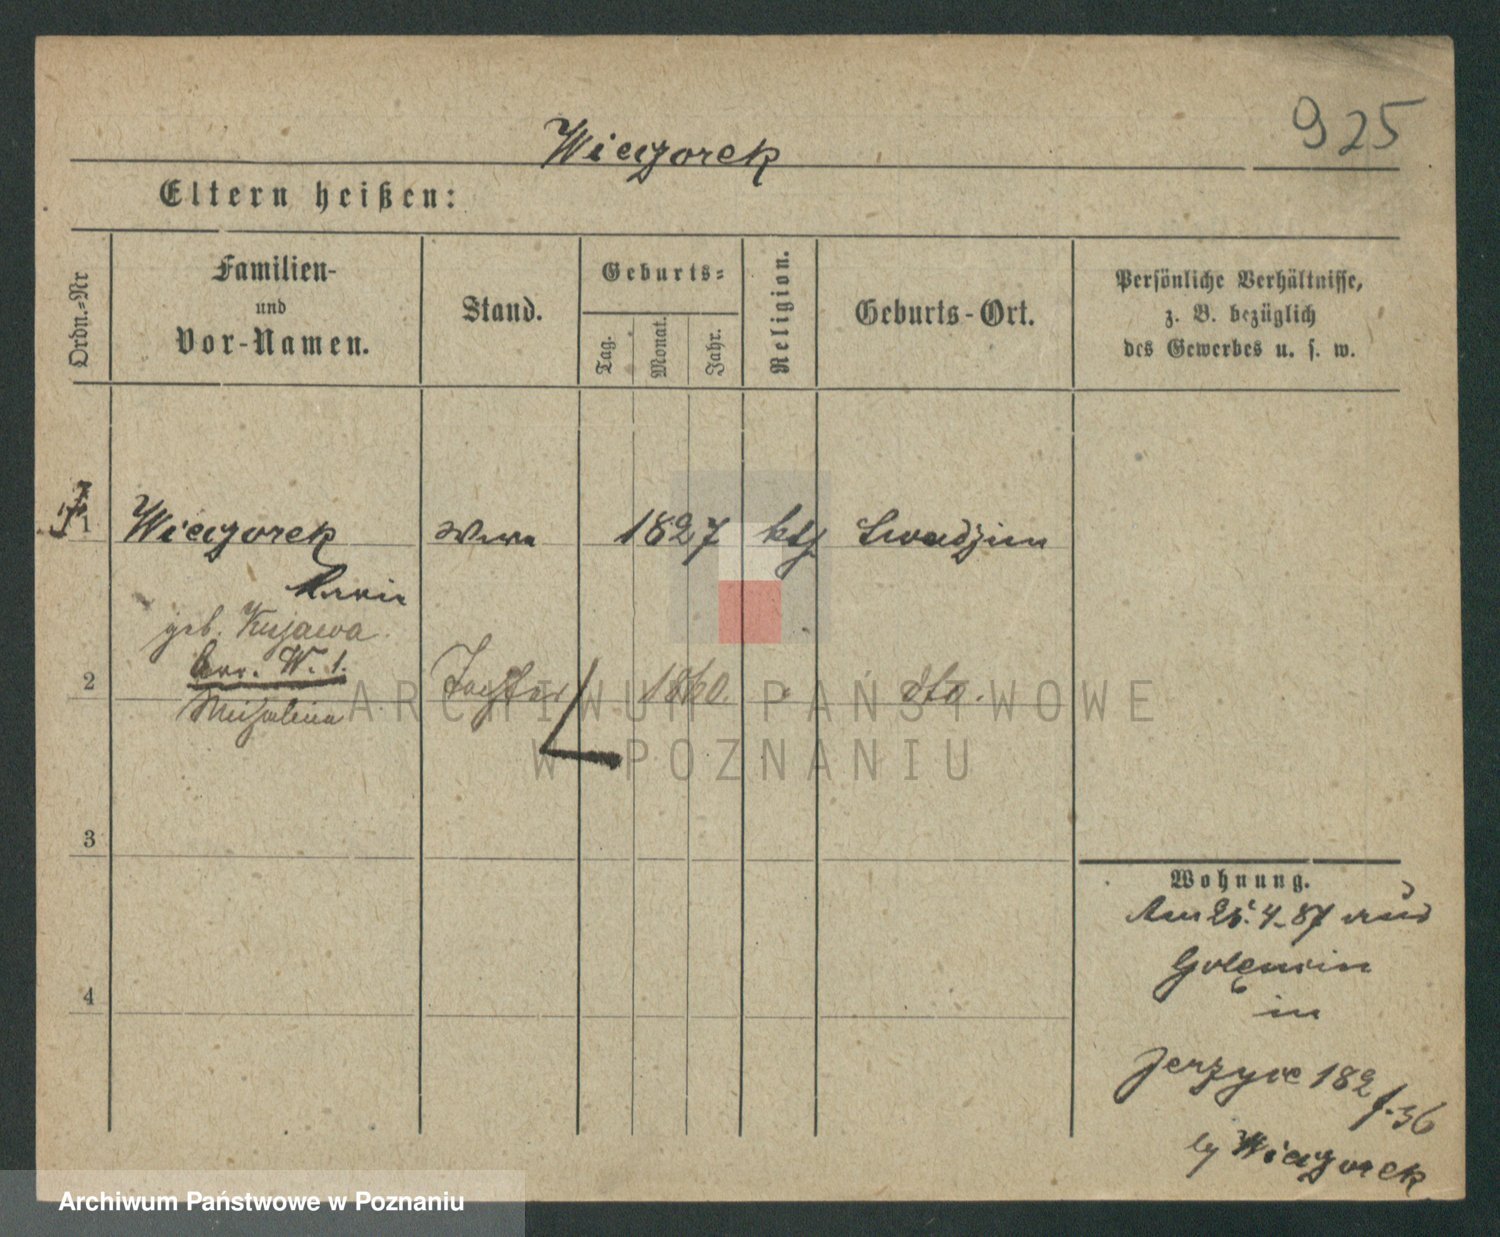 925
Wieczorek
Eltern heißen:
Ordn.=Nr
Familien-
und
Vor-Namen.
Stand.
Geburts=
Tag.
Monat.
Jahr.
Religion.
Geburts-Ort.
Persönliche Verhältnisse,
z. B. bezüglich
des Gewerbes u. s. w.
1 Wieczorek Wwe 1827 kth Swadzim
Marie
geb. Kujawa
W. 1.
2 Tochter dto.
Michalina
ARCHIWUM PAŃSTWOWE
W POZNANIU
3
Wohnung.
4.87 aus
Golencin
4
in
Jerzyce 182
36
by Wieczorek
Archiwum Państwowe w Poznaniu